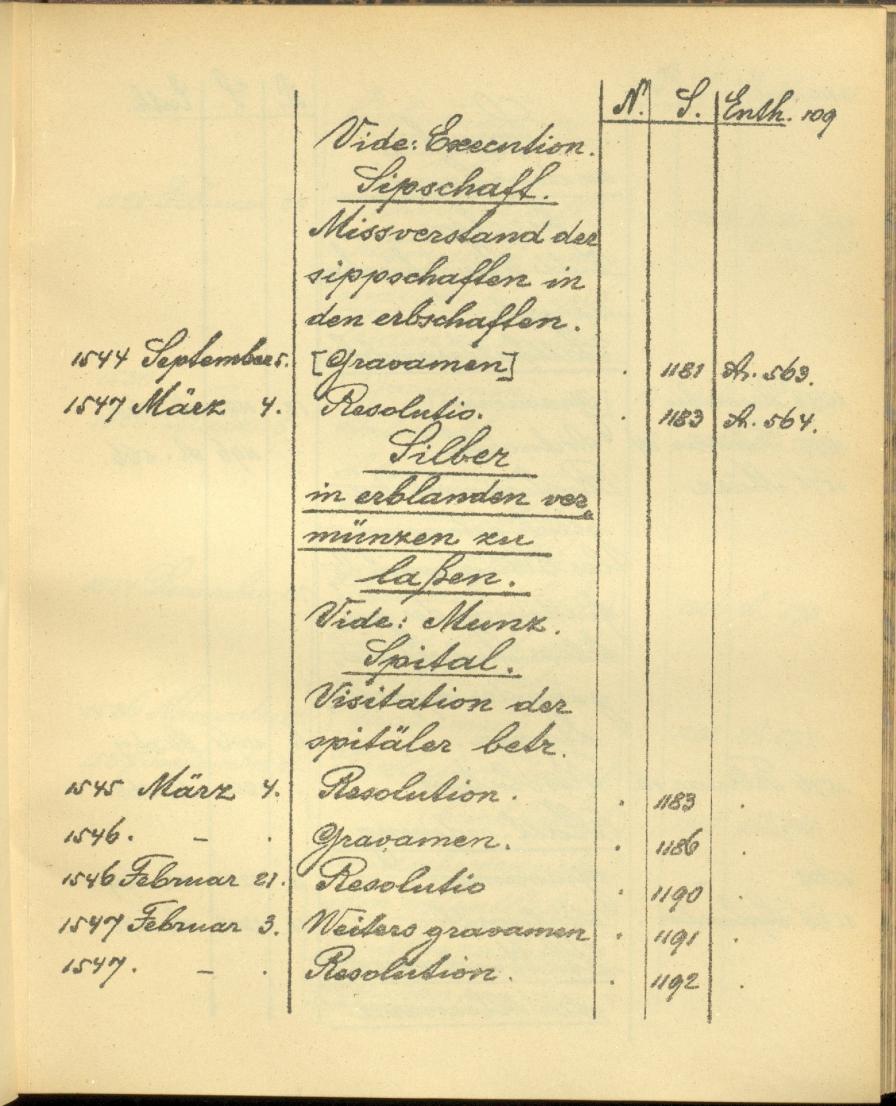 N. S. Enth. 109
Vide: Execution.
Sipschaft.
Missverstand der
sippschaften in
den erbschaften.
1544 September 5. [Gravamen] . 1181 A. 563.
1547 März 4. Resolutio. . 1183 A. 564.
Silber
in erblanden ver„
münzen zu
laßen.
Vide: Munz.
Spital.
Visitation der
spitäler betr.
1545 März 4. Resolution. . 1183 .
1546. – . Gravamen. . 1186 .
1546 Februar 21. Resolutio . 1190 .
1547 Februar 3. Weiters gravamen . 1191 .
1547. – . Resolution. . 1192 .